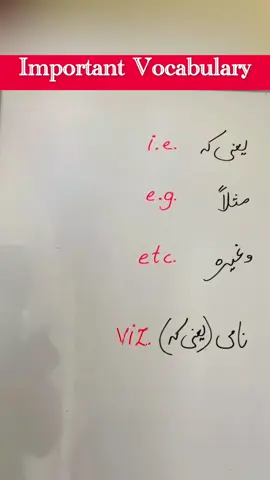 Important Vocabulary
i.e. یعنی کہ
e.g. مثلاً
etc. وغیرہ
viz. نامی (یعنی کہ)